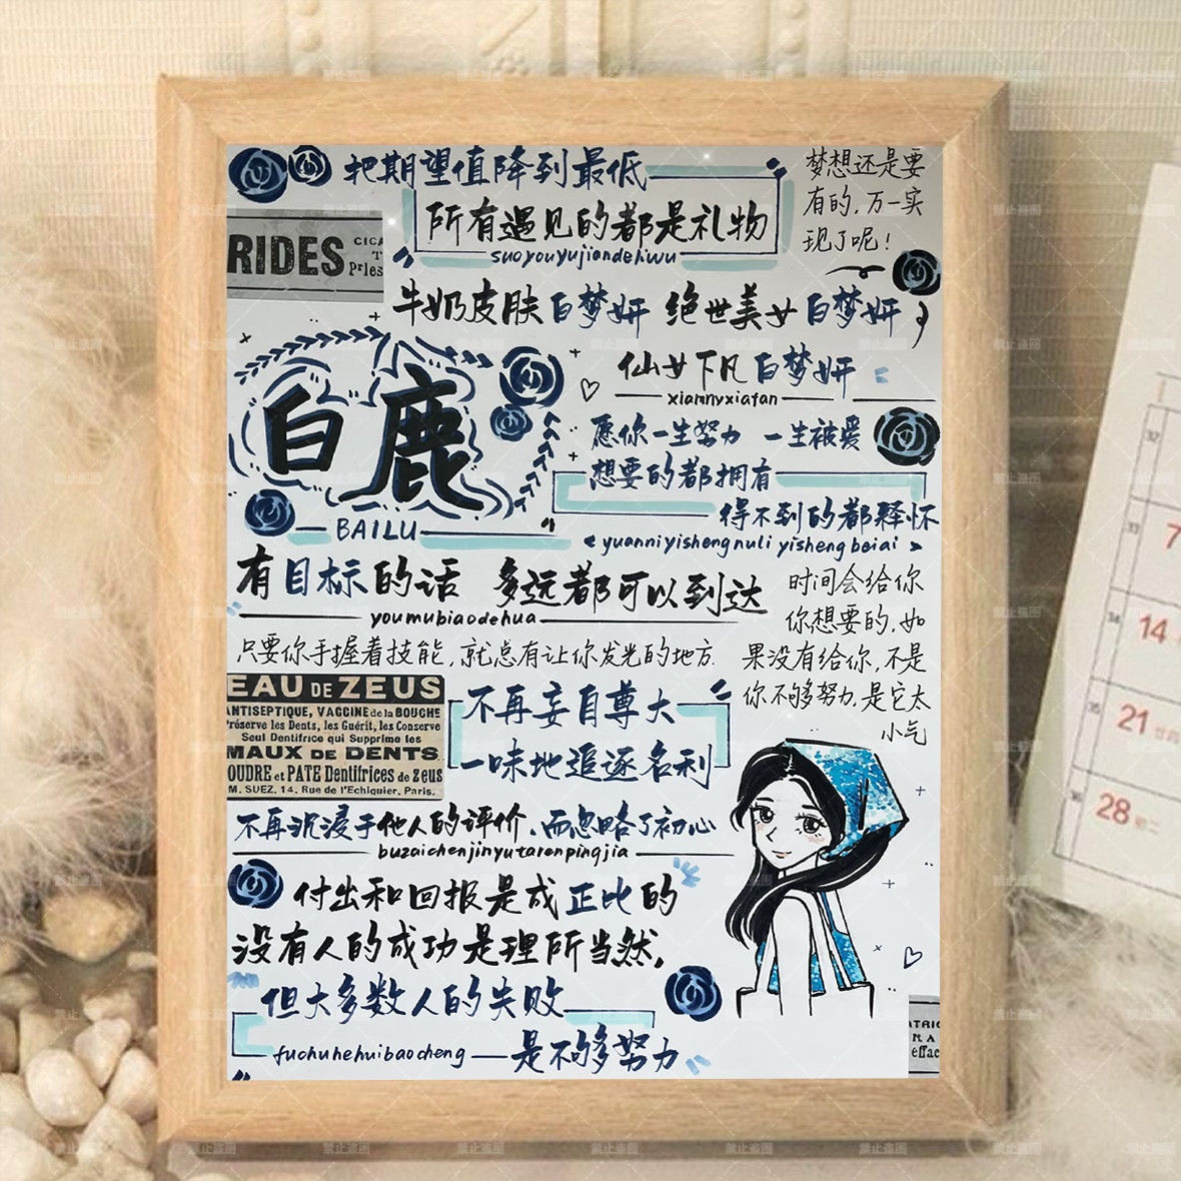 把期望值降到最低
所有遇见的都是礼物
suoyouyujiandeliwu
梦想还是要
有的,万一实
现了呢!
RIDES
CICA
T
Pries
牛奶皮肤白梦妍 绝世美女白梦妍
仙女下凡白梦妍
xiannvxiafan
白鹿
BAILU
愿你一生努力 一生被爱
想要的都拥有
得不到的都释怀
yuanniyishengnuli yishengbeiai
有目标的话 多远都可以到达
youmubiaodehua
只要你手握着技能,就总有让你发光的地方.
时间会给你
你想要的,如
果没有给你,不是
你不够努力,是它太
小气
EAU DE ZEUS
ANTISEPTIQUE, VACCINE de la BOUCHE
Préserve les Dents, les Guérit, les Conserve
Seul Dentifrice qui Supprime les
MAUX DE DENTS
OUDRE et PATE Dentifrices de Zeus
M. SUEZ, 14, Rue de l'Echiquier, Paris.
不再妄自尊大
一味地追逐名利
不再沉浸于他人的评价,而忽略了初心
buzaichenjinyutarenpingjia
付出和回报是成正比的
没有人的成功是理所当然,
但大多数人的失败
fuchuhehuibaocheng
是不够努力
ATRIC
RA
effac
32
33
7
34
14
35
21
36
28 初二
禁止盗图